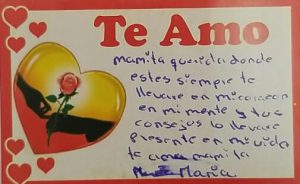 Te Amo
mamita querida donde
estes siempre te
llevare en mi corazon
en mi mente y tus
consejos lo llevare
presente en mi vida
te amo mamita
Maria